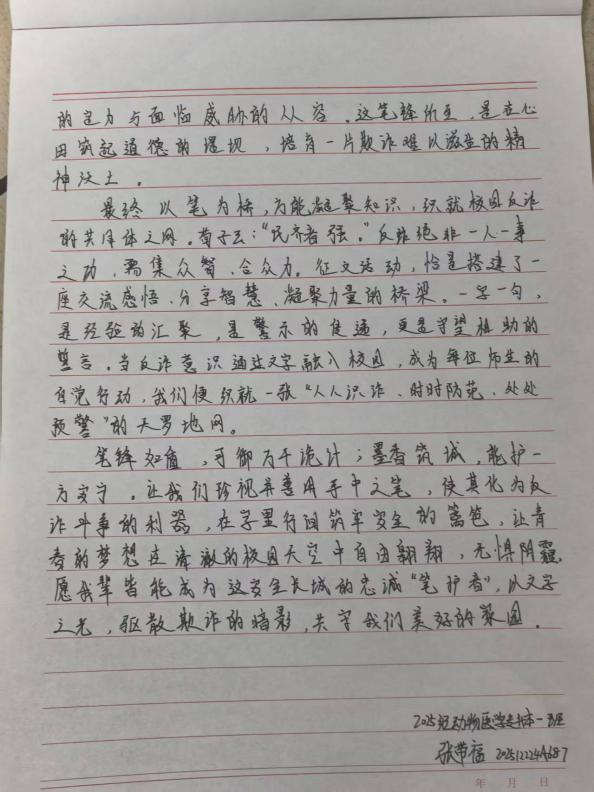 的定力与面临威胁的从容。这笔锋所至，是在心
田筑起道德的堤坝，培育一片欺诈难以滋生的精
神沃土。
最终以笔为桥，方能凝聚知识，织就校园反诈
的共同体之网。荀子云：“民齐者强。”反诈绝非一人一事
之功，需集众智、合众力。征文活动，恰是搭建了一
座交流感悟、分享智慧、凝聚力量的桥梁。一字一句，
是经验的汇聚，是警示的传递，更是守望相助的
誓言。当反诈意识通过文字融入校园，成为每位师生的
自觉行动，我们便织就一张“人人识诈、时时防范、处处
预警”的天罗地网。
笔锋如盾，可御万千诡计；墨香筑城，能护一
方安宁。让我们珍视并善用手中之笔，使其化为反
诈斗争的利器，在字里行间筑牢安全的篱笆，让青
春的梦想在清澈的校园天空中自由翱翔，无惧阴霾。
愿我辈皆能成为这安全长城的忠诚“笔护者”，以文字
之光，驱散欺诈的暗影，共守我们美好的家园。
2025级动物医学专升本一班
张带福 202512224A687
年 月 日